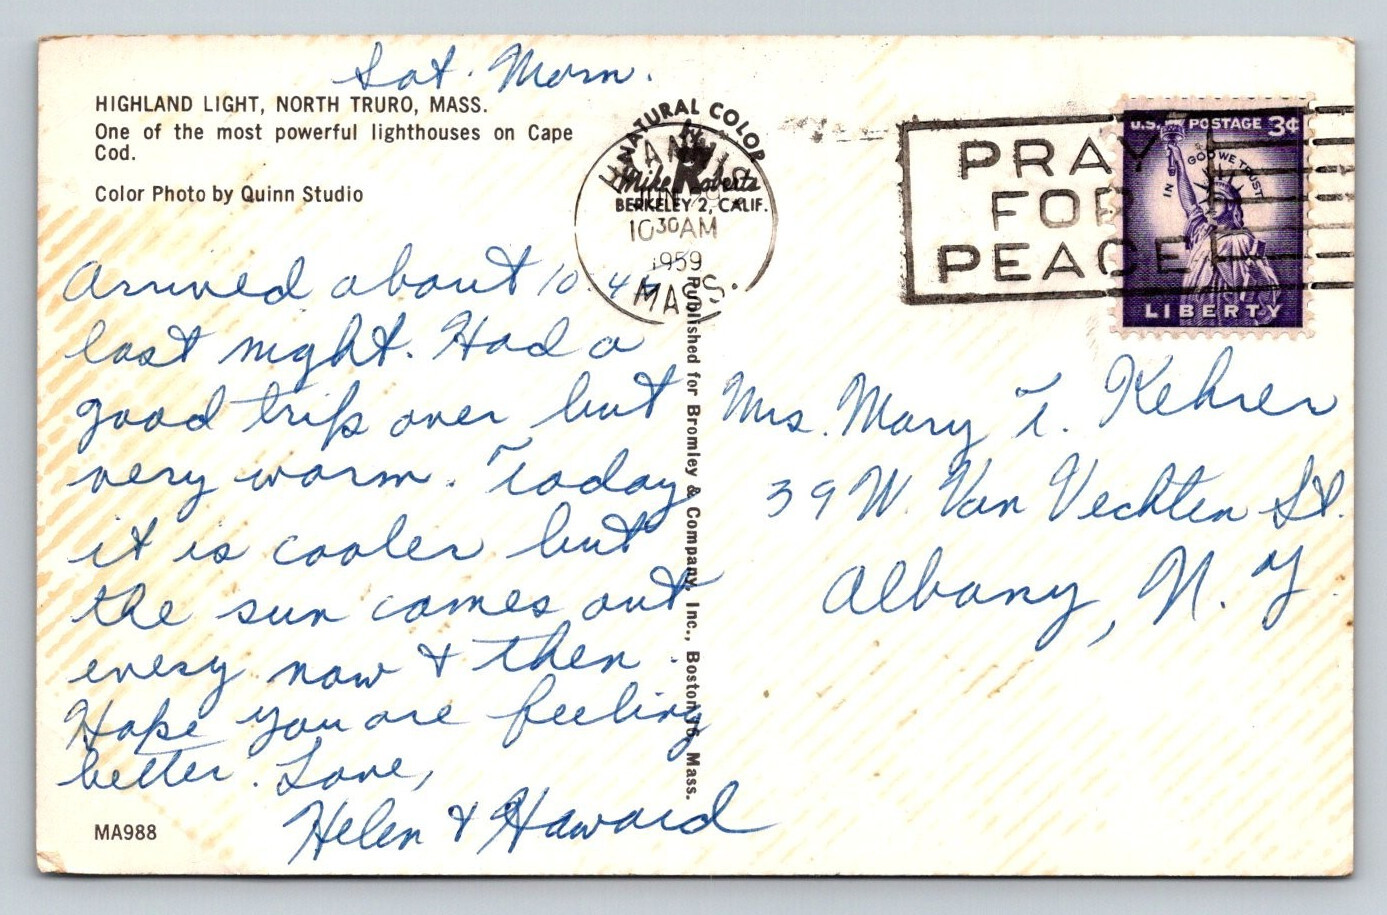 Sat. Morn.
HIGHLAND LIGHT, NORTH TRURO, MASS.
One of the most powerful lighthouses on Cape
Cod.
Color Photo by Quinn Studio
Arrived about 10:45
last night. Had a
good trip over but
very warm. Today
it is cooler but
the sun comes out
every now & then.
Hope you are feeling
better. Love,
Helen & Howard
MA988
NATURAL COLOR
Mike Roberts
BERKELEY 2, CALIF.
10 30 AM
1959
MASS.
Published for Bromley & Company, Inc., Boston 16, Mass.
PRAY
FOR
PEACE
U.S. POSTAGE 3¢
IN GOD WE TRUST
LIBERTY
Mrs. Mary T. Kehrer
39 W. Van Vechten St.
Albany, N. Y.